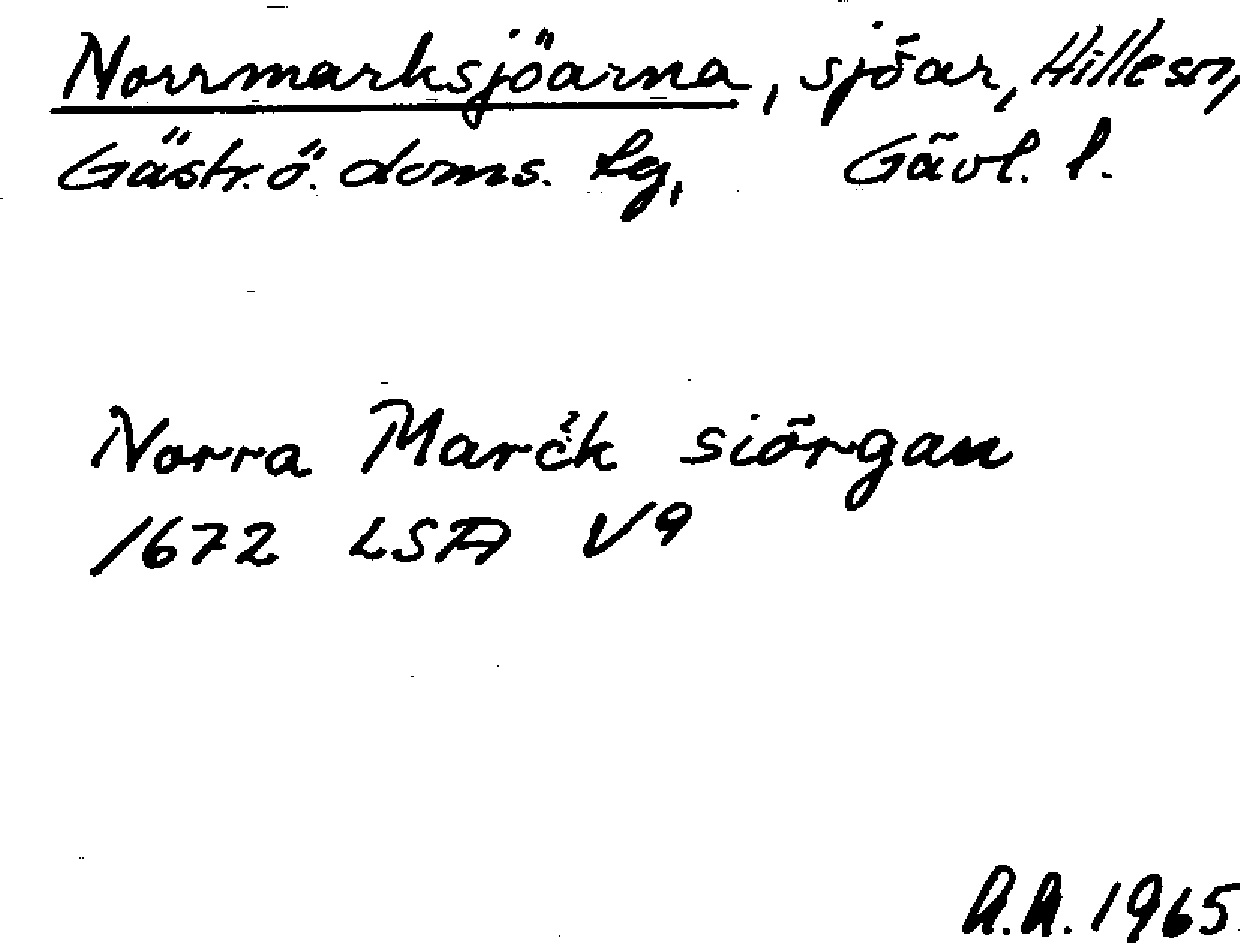 Norrmarksjöarna, sjöar, Hille sn,
Gästr. ö. doms. lg, Gävl. l.
Norra Marck siörgan
1672 LSA V9
A.A. 1965